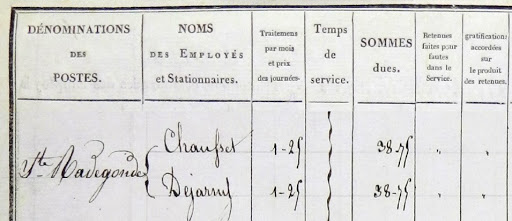 DÉNOMINATIONS DES POSTES.
NOMS DES EMPLOYÉS et Stationnaires.
Traitemens par mois et prix des journées.
Temps de service.
SOMMES dues.
Retenues faites pour fautes dans le Service.
gratifications accordées sur le produit des retenues.
Ste Radegonde
Chausset 1-25 38-75 " "
1-25 38-75 " "